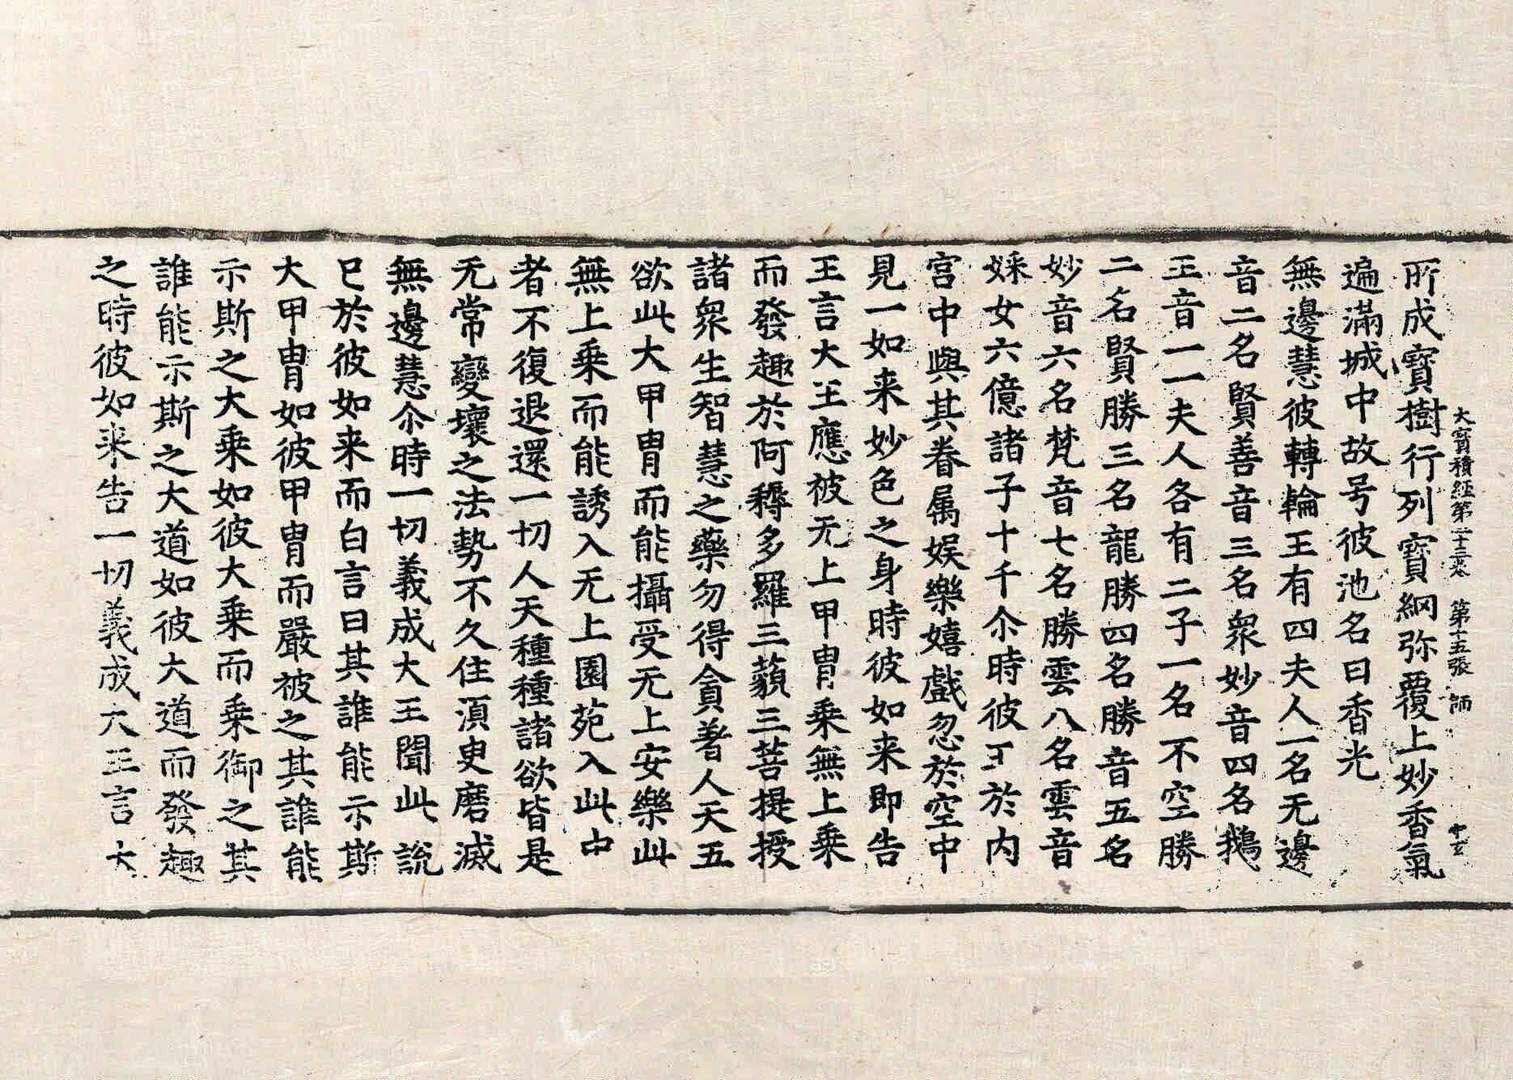 大寶積經第二十三卷 第十五張 師
所成寶樹行列寶網弥覆上妙香氣
遍滿城中故号彼池名曰香光
無邊慧彼轉輪王有四夫人一名无邊
音二名賢善音三名衆妙音四名鵝
王音一一夫人各有二子一名不空勝
二名賢勝三名龍勝四名勝音五名
妙音六名梵音七名勝雲八名雲音
婇女六億諸子十千尒時彼王於内
宮中與其眷属娛樂嬉戲忽於空中
見一如来妙色之身時彼如来即告
王言大王應被无上甲冑乗無上乗
而發趣於阿耨多羅三藐三菩提授
諸衆生智慧之藥勿得貪著人天五
欲此大甲冑而能攝受无上安樂此
無上乗而能誘入无上園苑入此中
者不復退還一切人天種種諸欲皆是
无常變壞之法勢不久住湏臾磨滅
無邊慧尒時一切義成大王聞此說
已於彼如来而白言曰其誰能示斯
大甲冑如彼甲冑而嚴被之其誰能
示斯之大乗如彼大乗而乗御之其
誰能示斯之大道如彼大道而發趣
之時彼如来告一切義成大王言大